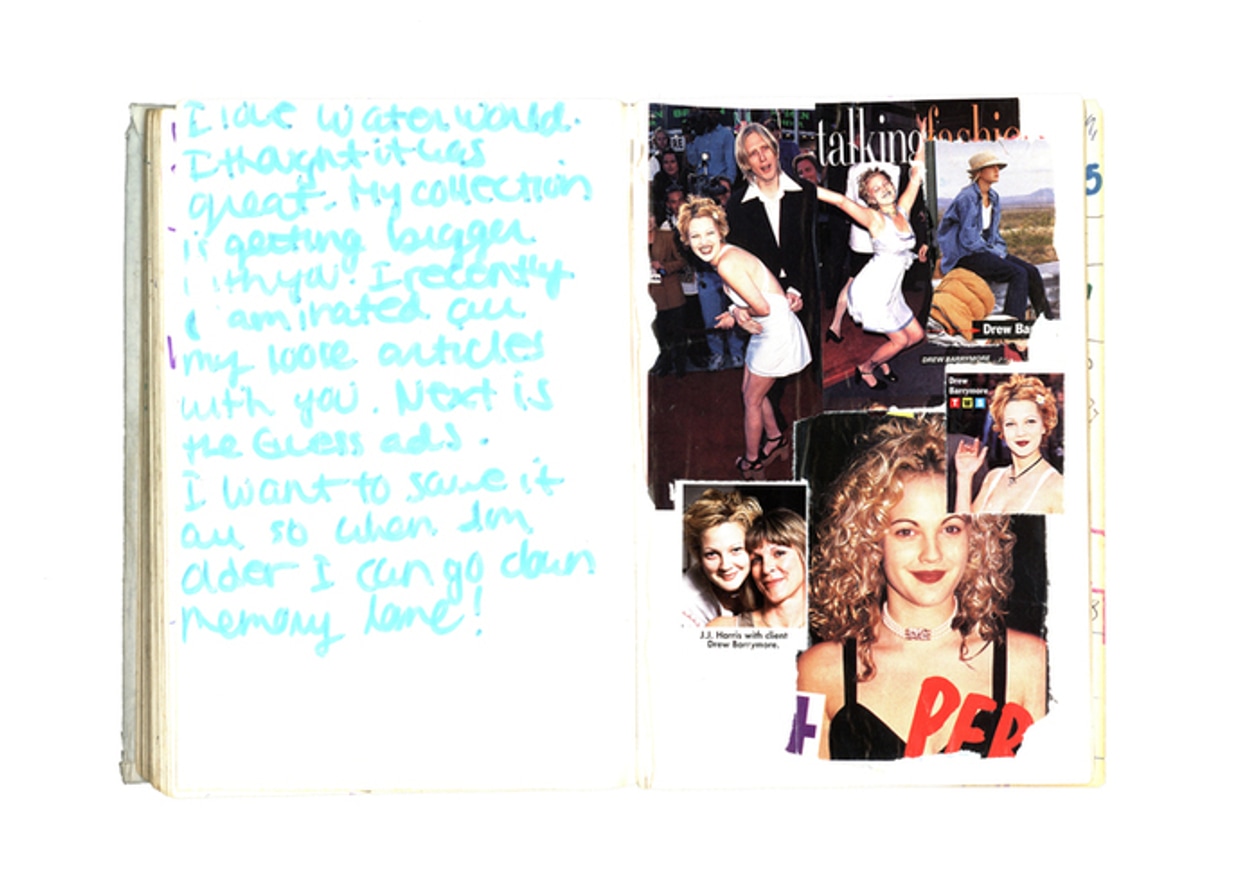 I love Waterworld.
I thought it was
great. My collection
is getting bigger
with you. I recently
laminated all
my loose articles
with you. Next is
the Guess ads.
I want to save it
all so when I'm
older I can go down
memory lane!
talking fashion
Drew Ba
DREW BARRYMORE
Drew
Barrymore
T W S
J.J. Harris with client
Drew Barrymore.
PER
5